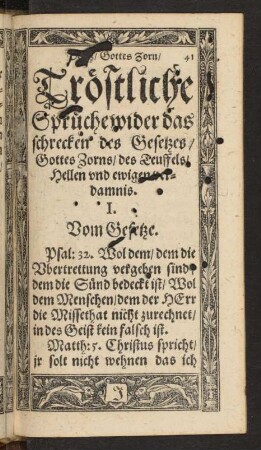 / Gottes Zorn/ 41
Tröstliche
Sprüche wider das
schrecken des Gesetzes/
Gottes Zorns/ des Teuffels/
Hellen vnd ewigen ver-
damnis.
I.
Vom Gesetze.
Psal: 32. Wol dem/ dem die
Vbertrettung vergeben sind/
dem die Sünd bedeckt ist/ Wol
dem Menschen/ dem der HErr
die Missethat nicht zurechnet/
in des Geist kein falsch ist.
Matth: 5. Christus spricht/
jr solt nicht wehnen das ich